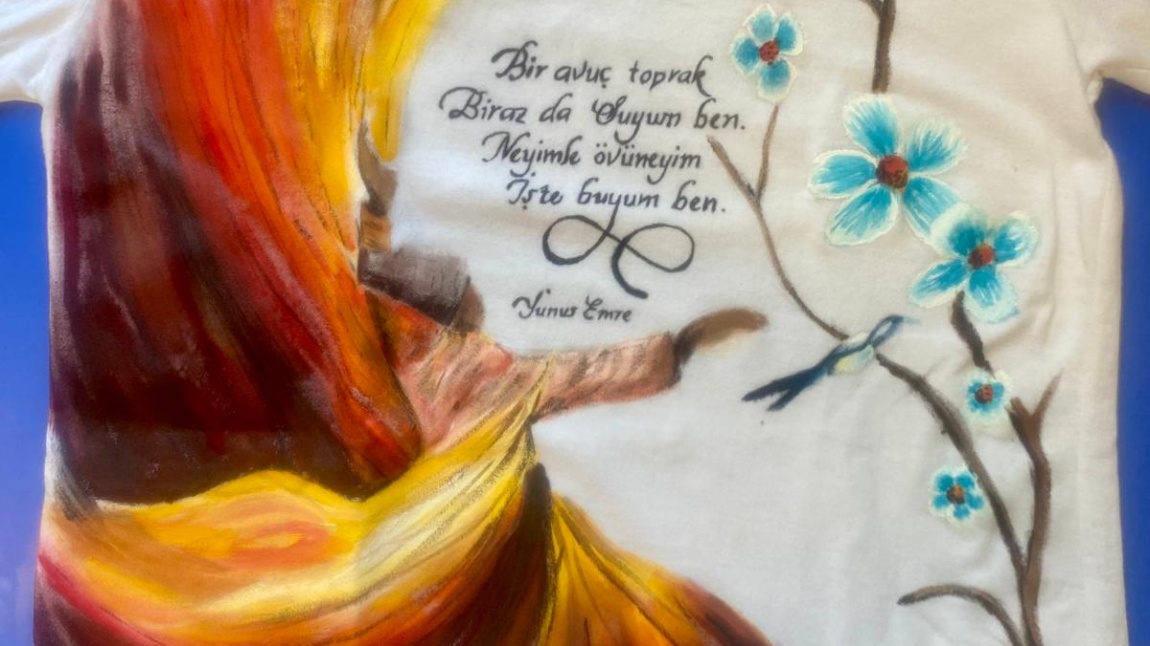 Bir avuç toprak
Biraz da Suyum ben.
Neyimle övüneyim
İşte buyum ben.
Yunus Emre